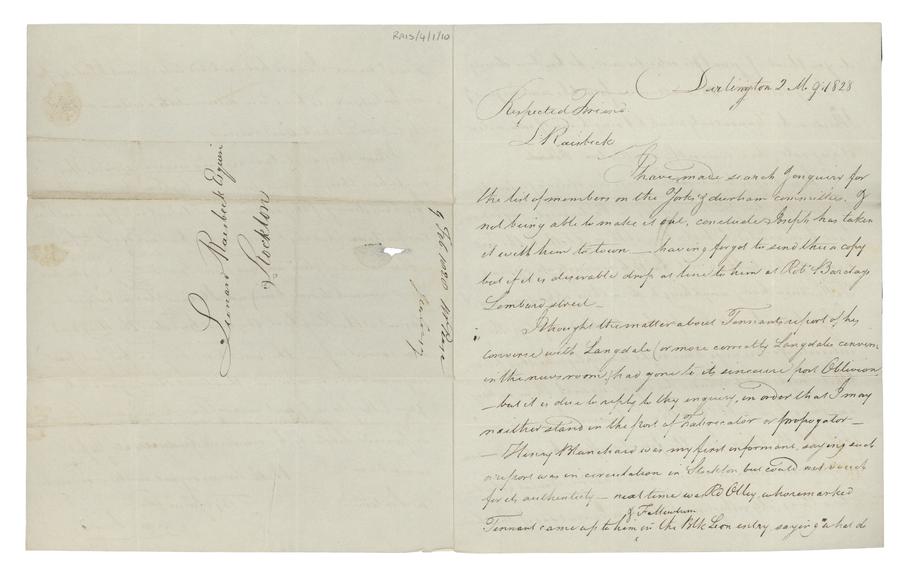 RAIS/4/1/10
Leonard Raisbeck Esquire
Stockton
9 Feb 1828
Darlington 2 Mo 9th 1828
Respected Friend
L Raisbeck
I have made search & enquiry for
the list of members on the Yorks & durham committee, &
not being able to make it out, conclude Joseph has taken
it with him to town — having forgot to send thee a copy
but if it is desirable drop a line to him at Robt Barclays
Lombard street —
I thought the matter about Tennants report of his
converse with Langdale (or more correctly Langdales
in the news room) had gone to its sinecure port Oblivion,
— but it is due to reply to thy enquiry, in order that I may
neither stand in the port of Fabricator or propogator —
— Henry Blanchard was my first informant, saying such
a report was in circulation in Stockton but could not vouch
for its authenticity — next time was Rd Otley, who remarked
& Fallowdum
Tennant came up to him in the Blk Lion entry, saying "what do